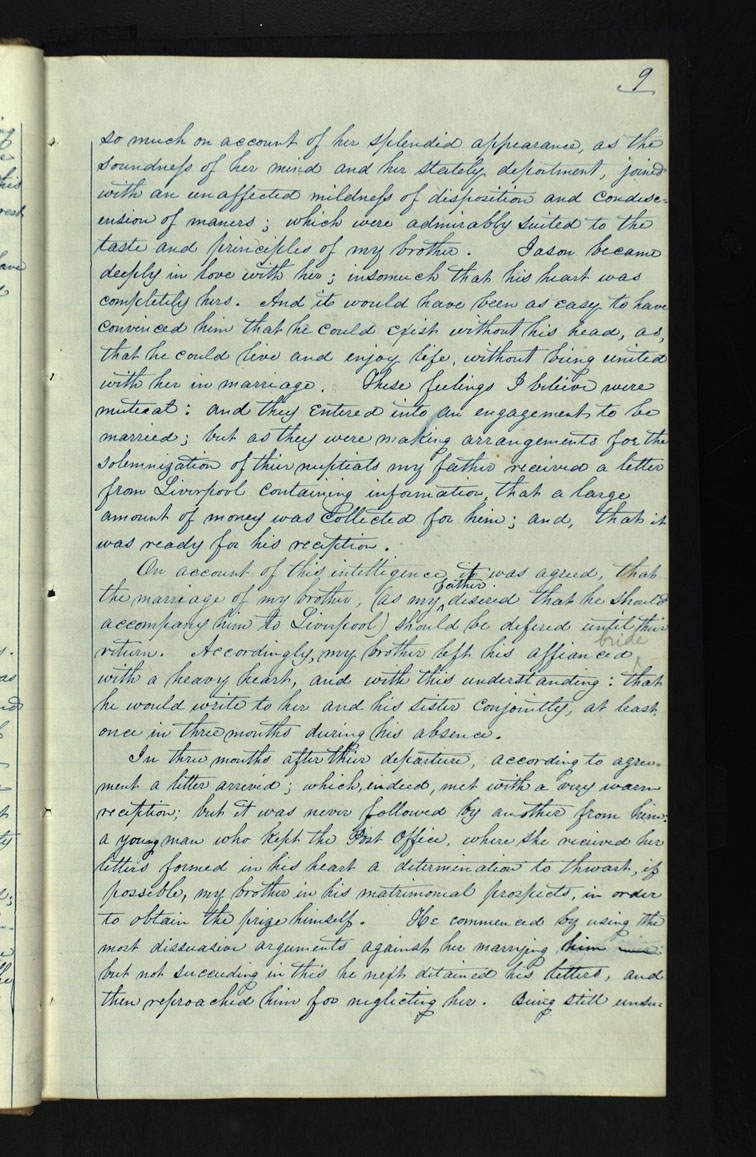 9
so much on account of her splendid appearance, as the
soundness of her mind and her stately deportment, joined
with an unaffected mildness of disposition and condesc=
ension of maners; which were admirably suited to the
taste and principles of my brother. Jason became
deeply in love with her; insomuch that his heart was
completely hers. And it would have been as easy to have
convinced him that he could exist without his head, as,
that he could live and enjoy life, without being united
with her in marriage. These feelings I believe were
muteal: and they entered into an engagement, to be
married; but as they were making arrangements for the
solemnization of their nuptials my father received a letter
from Liverpool containing information, that a large
amount of money was collected for him; and, that it
was ready for his reception.
On account of this intelligence, it was agreed, that
the marreage of my brother, (as my father desered that he should
accompany him to Liverpool) should be defered until their
return. Accordingly, my brother left his affianced bride
with a heavy heart, and with this understanding: that
he would write to her and his sister conjointly, at least
once in three months during his absence.
In three months after their departure, according to agree=
ment a letter arrived; which, indeed, met with a very warm
reception; but it was never followed by another from him:
a young man who kept the Post Office, where she received her
letters formed in his heart a determination to thwart, if
possible, my brother in his matrimonial prospects, in order
to obtain the prize himself. He commenced by using the
most dissuasive arguments against her marrying him
but not succeeding in this he next detained his letters, and
then reproached him for neglecting her. Being still unsu=